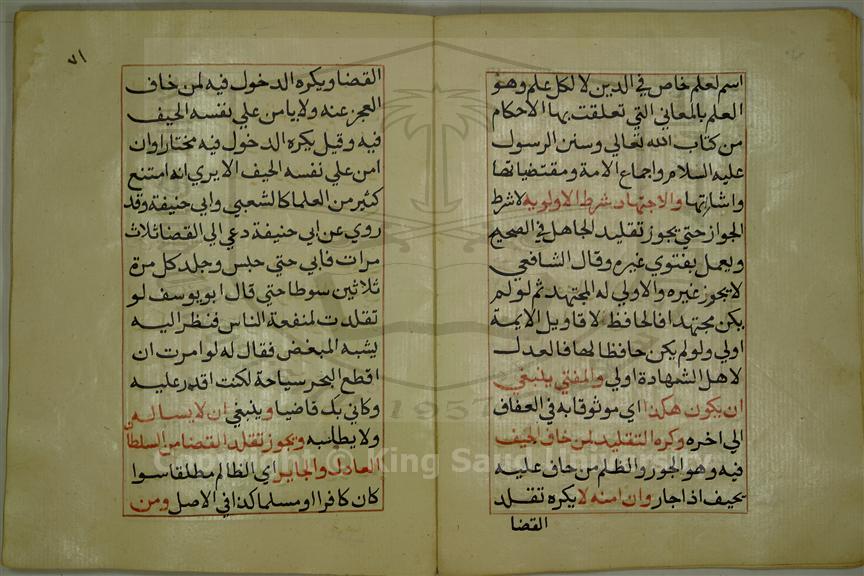 اسم لعلم خاص في الدين لا لكل علم وهو
العلم بالمعاني التي تعلقت بها الاحكام
من كتاب الله تعالى وسنن الرسول
عليه السلام واجماع الامة ومقتضياتها
واشاراتها والاجتهاد شرط الاولويه لا شرط
الجواز حتي يجوز تقليد الجاهل في الصحيح
ويعمل بفتوي غيره وقال الشافعي
لا يجوز غيره والاولي له المجتهد ثم لو لم
يكن مجتهدا فالحافظ لاقاويل الايمة
اولي ولو لم يكن حافظا لها فالعدل
لاهل الشهادة اولي والمفتي ينبغي
ان يكون هكذا اي موثوقا به في العفاف
الي اخره وكره التقليد لمن خاف الحيف
فيه وهو الجور والظلم من حاف عليه
يحيف اذا جار وان امنه لا يكره تقلد
القضا
٧١
القضا ويكره الدخول فيه لمن خاف
العجز عنه ولا يامن علي نفسه الحيف
فيه وقيل يكره الدخول فيه مختارا وان
امن علي نفسه الحيف الا يري انه امتنع
كثير من العلما كالشعبي وابي حنيفة وقد
روي عن ابي حنيفة دعي الي القضا ثلاث
مرات فابي حتي حبس وجلد كل مرة
ثلاثين سوطا حتي قال ابو يوسف لو
تقلدت لمنفعة الناس فنظر اليه
يشبه المبغض فقال له لو امرت ان
اقطع البحر سياحة لكنت اقدر عليه
وكاني بك قاضيا وينبغي ان لا يساله
ولا يطلبه ويجوز تقلد القضا من السلطان
العادل والجاير اي الظالم مطلقا سوا
كان كافرا او مسلما كذا في الاصل ومن
1957
Copyright © King Saud University